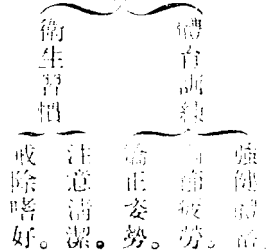 體育訓練
強健體
有節疲勞。
矯正姿勢。
衛生習慣
注意清潔。
戒除嗜好。